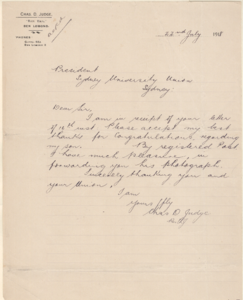 CHAS. D. JUDGE.
BEN LOMOND.
22nd July 1918
President
Sydney University Union
Sydney.
Dear Sir,
I am in receipt of your letter
of 19th inst. Please accept my best
thanks for Congratulations regarding
my son. By registered Post
I have much pleasure in
forwarding you his photograph.
Sincerely thanking you and
your Union.
I am
Yours ffly
Chas D. Judge